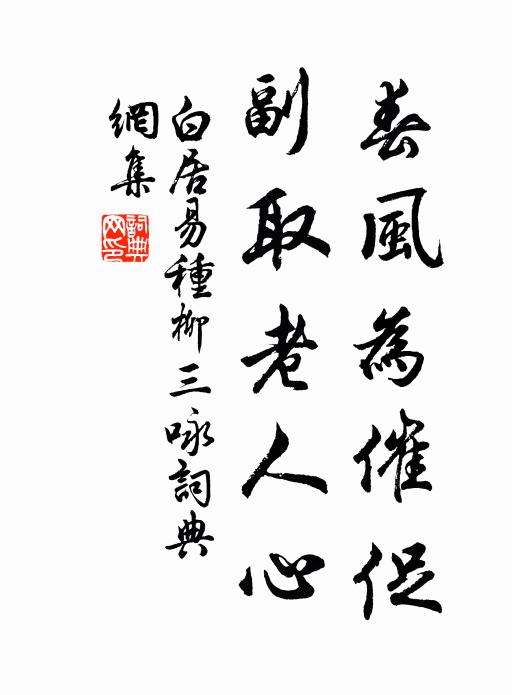 春風為催促
副取老人心
白居易種柳三咏詞典
網集
詞典
網印